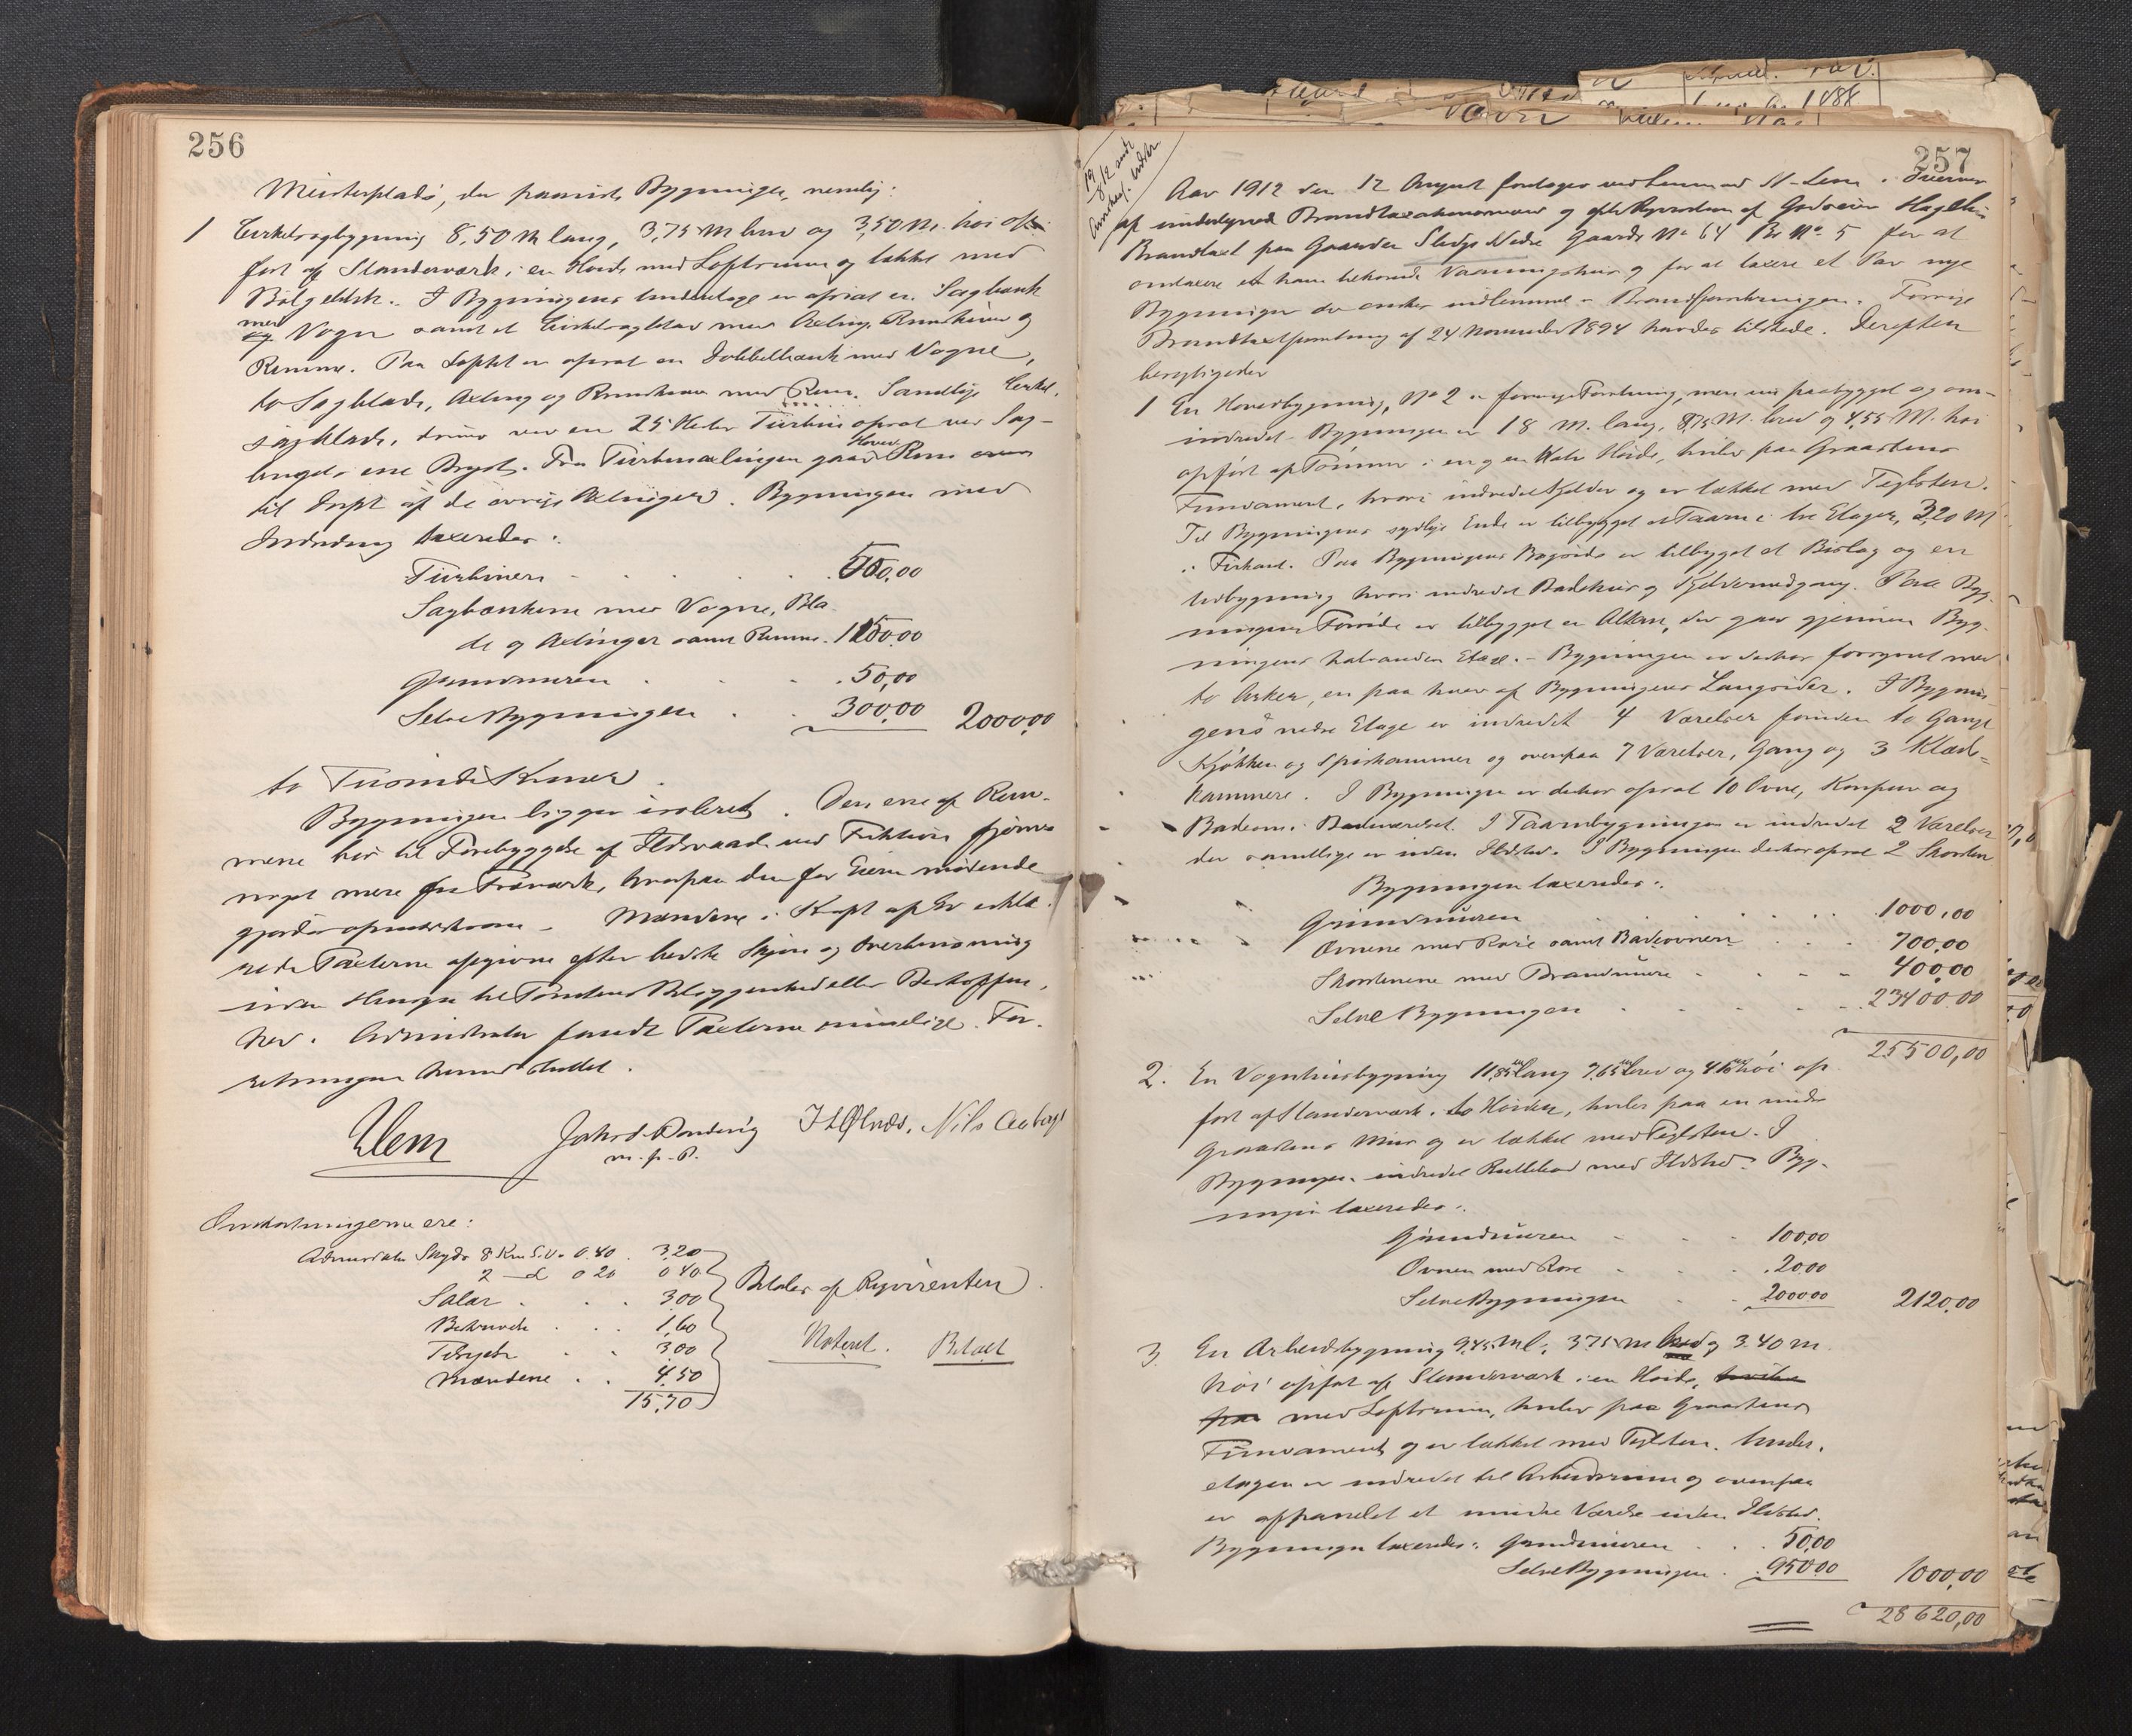 256
Meisterplads, de paanids Bygninger, nemlig:
1 Cirkelsagbygning 8,50 M lang, 3,75 M bred og 3,50 M. høi op-
ført af Standerværk i en Høide med Loftsrum og tækket med
Bølgeblik. I Bygningens Underetage er opsat en Sagbænk
med Vogn samt et Cirkelsagblad med Axling, Remskiver og
Remme. Paa Loftet er opsat en Dobbelbænk med Vogne,
to Sagblade, Axling og Remskiver med Rem. Samtlige Cirkel-
sagblade, drives ved en 25 Hesters Turbin opsat ved Sag-
brugets ene Bryst. Fra Turbinaxlingen gaar Hoved Rem
til Drift af de øvrige Axlinger. Bygningen med
Indredning taxeredes:
Turbinen 500,00
Sagbænkene med Vogne, Bla-
de og Axlinger samt Remme 1150,00
Grundmuren 50,00
Selve Bygningen 300,00 2000,00
to Tusinde Kroner.
Bygningen ligger isoleret. Den ene af Rem-
mene bør til Forebyggelse af Ildsvaade ved Friktion fjernes
noget mere fra Træværk, hvorpaa den for Eieren mødende
gjordes opmærksom. Mændene i Kraft af Ed erklæ-
rede Taxterne afgivne efter bedste Skjøn og Overbevisning
uden Hensyn til Tomtens Beliggenhed eller Beskaffen-
hed. Administrator fandt Taxterne rimelige. For-
retningen hermed sluttet.
Klem Jakob Rondesig J L Ølnæs, Nils Aaberge
m. p. P.
Omkostningerne ere:
Administrators Skyds 8 Km S.V. 0.40 3,20
2 — d 0 20 0 40
Salar 3,00
Bekræft. 1,60
Tilsyn 3,00
Mændene 4,50
15,70
Betales af Rqvirenten
Noteret. Betalt
257
19/8 12 sendt
Amtsf. Udskr.
Aar 1912 den 12 August foretages ved Lensmand St. Lem i Overvær
af undertegnede Brandtaxationsmænd og efter Reqvisition af Godseier Hagelin
Brandtaxt paa Gaarden Sledge Nedre Gaards No 64 Br No. 5 for at
omtaxere et ham tilhørende Vaaningshus og for at taxere et Par nye
Bygninger der ønskes indlemmet i Brandforsikringen. Forrige
Brandtaxtforretning af 24 November 1894 havdes tilstede. Derefter
besigtigedes
1 En Hovedbygning, No 2 i forrige Forretning, men nu paabygget og om-
indredet. Bygningen er 18 M. lang, 8,75 M. bred og 4,55 M. høi
opført af Tømmer i en og en Halv Høide, hviler paa Graastens
Fundament, hvori indredet Kjelder og er tækket med Teglsten.
Til Bygningens sydlige Ende er tilbygget et Taarn i tre Etager, 3,20 M
i Firkant. Paa Bygningens Bagside er tilbygget et Bislag og en
Udbygning hvori indredet Badehus og Kjeldernedgang. Paa Byg-
ningens Forside er tilbygget en Altan, der gaar gjennem Byg-
ningens halvanden Etage. – Bygningen er desuden forsynet med
to Arker, en paa hver af Bygningens Langsider. I Bygnin-
gens nedre Etage er indredet 4 Værelser foruden to Gange
Kjøkken og Spiskammer og ovenpaa 7 Værelser, Gang og 3 Klæde-
kammere. I Bygningen er desuden opsat 10 Ovne, Komfur og
Badeovn i Badeværelset. I Taarnbygningen er indredet 2 Værelser
der samtlige er uden Ildsted. I Bygningen desuden opsat 2 Skorsten
Bygningen taxeredes:
Grundmuren 1000,00
Ovnene med Rør samt Badeovnen 700,00
Skorstenene med Brandmure 400,00
Selve Bygningen 23400,00
25500,00
2. En Vognhusbygning 11,85 m lang 7,65 m bred og 4,10 m høi op-
ført af Standerværk i to Høider, hviler paa en mindre
Graastens Mur og er tækket med Teglsten. I
Bygningen indredet Rullebod med Ildsted. Byg-
ningen taxeredes:
Grundmuren 100,00
Ovnen med Rør 20,00
Selve Bygningen 2000,00 2120,00
3. En Arbeidsbygning 9,45 M l. 3,75 m bred og 3.40 m
høi opført af Standerværk i en Høide, hviler
paa med Loftsrum, hviler paa Graastens
Fundament og er tækket med Teglsten. Under-
etagen er indredet til Arbeidsrum og ovenpaa
er oppanelet et mindre Værelse uden Ildsted.
Bygningen taxeredes: Grundmuren 50,00
Selve Bygningen 950,00 1000,00
28620,00